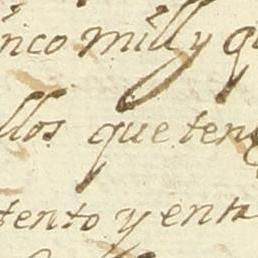 inco mill y q
llos que ten
tento y entr